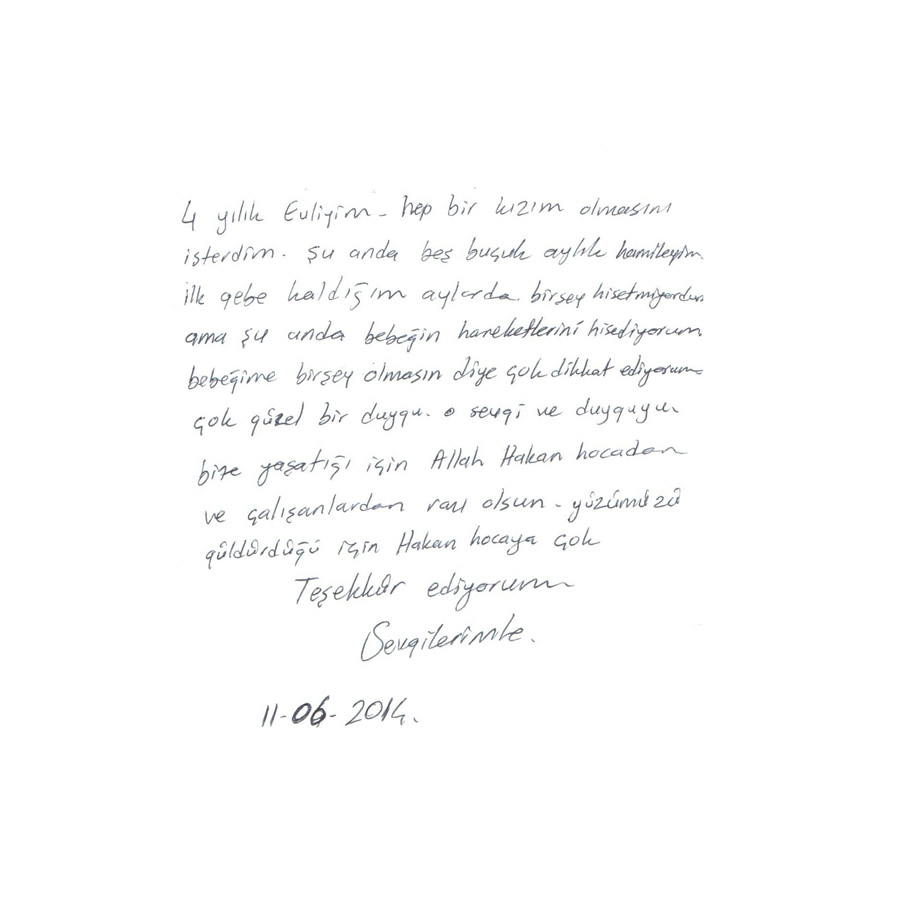 4 yılık Evliyim - hep bir kızım olmasını
isterdim. şu anda beş buşuk aylık hamileyim
ilk gebe kaldığım aylarda birşey hisetmiyordum
ama şu anda bebeğin hareketlerini hisediyorum
bebeğime birşey olmasın diye çok dikkat ediyorum
çok güzel bir duygu. o sevgi ve duyguyu
bize yaşatığı için Allah Hakan hocadan
ve çalışanlardan razı olsun - yüzümüzü
güldürdüğü için Hakan hocaya çok
Teşekkür ediyorum
Sevgilerimle.
11-06-2014.